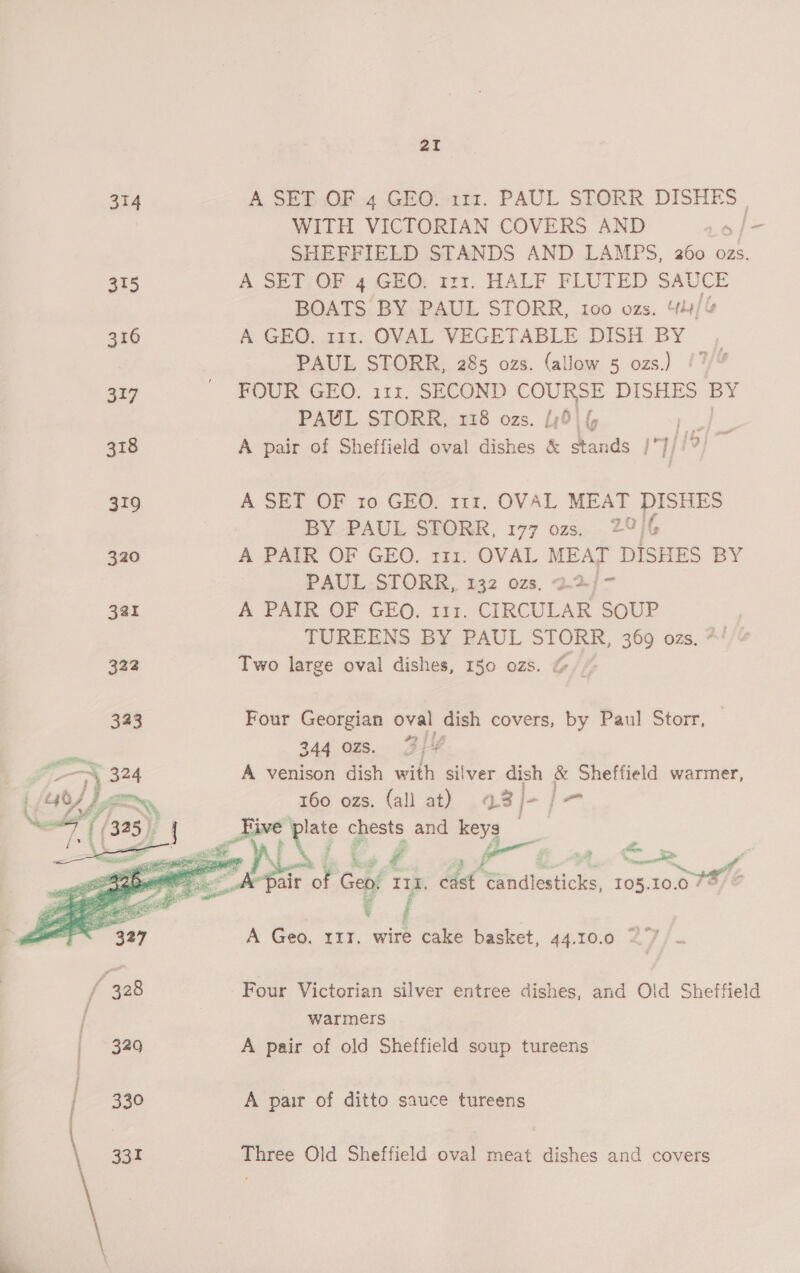 21
314 A SET OF 4 GEO. 111. PAUL STORR DISHES
WITH VICTORIAN COVERS AND
SHEFFIELD STANDS AND LAMPS, 260 ozs.
315 A SET OF 4 GEO. 111. HALF FLUTED SAUCE
BOATS BY PAUL STORR, 100 ozs. 44/6
316 A GEO. 111. OVAL VEGETABLE DISH BY
PAUL STORR, 285 ozs. (allow 5 ozs.)
317 FOUR GEO. 111. SECOND COURSE DISHES BY
PAUL STORR, 118 ozs. 40/6
318 A pair of Sheffield oval dishes & stands
319 A SET OF 10 GEO. 111. OVAL MEAT DISHES
BY PAUL STORR, 177 ozs. 20/6
320 A PAIR OF GEO. 111. OVAL MEAT DISHES BY
PAUL STORR, 132 ozs. 22/-
321 A PAIR OF GEO. 111. CIRCULAR SOUP
TUREENS BY PAUL STORR, 369 ozs.
322 Two large oval dishes, 150 ozs.
323 Four Georgian oval dish covers, by Paul Storr,
344 ozs.
324 A venison dish with silver dish & Sheffield warmer,
160 ozs. (all at) 23/-
325 Five plate chests and keys
326 A pair of Geo. 111. cast candlesticks, 105.10.0
327 A Geo. 111. wire cake basket, 44.10.0
328 Four Victorian silver entree dishes, and Old Sheffield
warmers
329 A pair of old Sheffield soup tureens
330 A pair of ditto sauce tureens
331 Three Old Sheffield oval meat dishes and covers